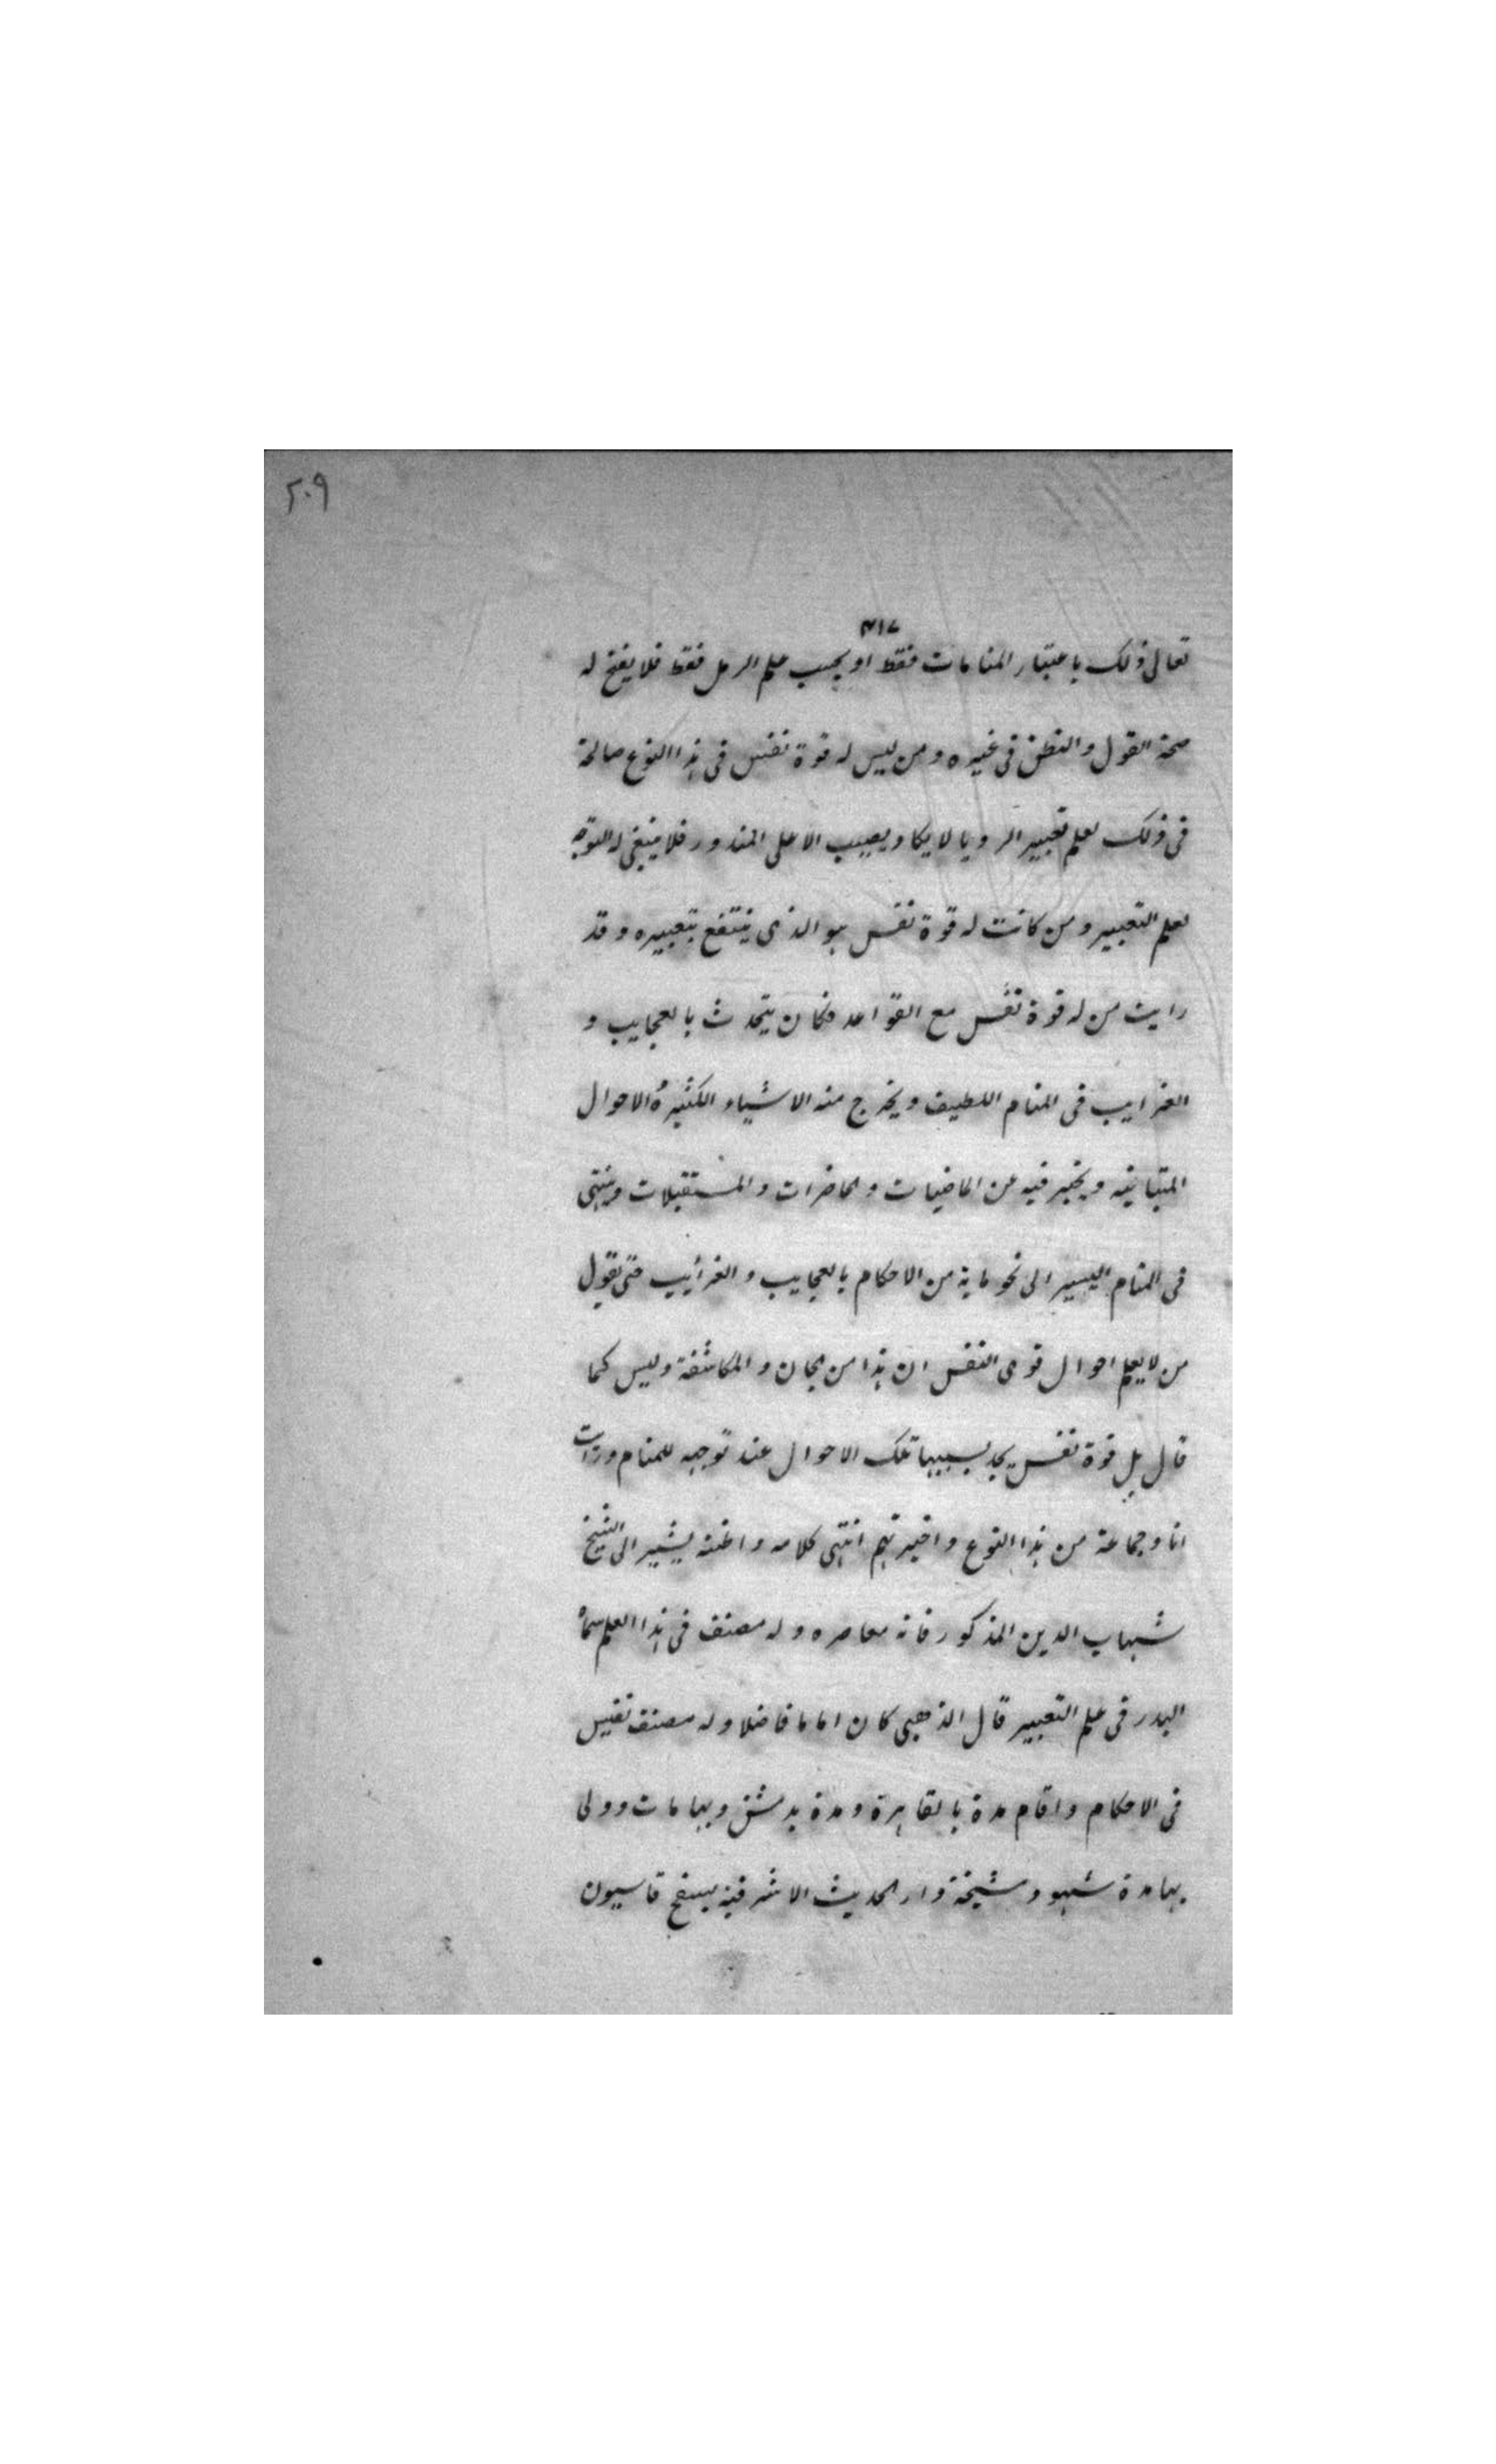 ٢٠٩
٤١٧
تعالى ذلك باعتبار المنامات فقط او بحسب علم الرمل فقط فلا يفتح له
صحة القول والنطق فى غيره ومن ليس له قوة نفس فى هذا النوع صالحة
فى ذلك لعلم تعبير الرويا لا يكاد يصيب الا على المندور فلا ينبغى له التوجه
لعلم التعبير ومن كانت له قوة نفس هو الذى ينتفع بتعبيره وقد
رايت من له قوة نفس مع القواعد فكان يتحدث بالعجايب و
الغرايب فى المنام اللطيف ويخرج منه الاشياء الكثيرة الاحوال
المتباينه ويخبر فيه عن الماضيات والحاضرات والمستقبلات وينتهى
فى المنام اليسير الى نحو ماية من الاحكام بالعجايب والغرائيب حتى يقول
من لا يعلم احوال قوى النفس ان هذا من الجان والمكاشفة وليس كما
قال بل قوة نفس يجد بسببها تلك الاحوال عند توجهه للمنام ورايت
انا وجماعة من هذا النوع واختبرتهم انتهى كلامه واظنه يشير الى الشيخ
شهاب الدين المذكور فانه معاصره وله مصنف فى هذا العلم سماه
البدر فى علم التعبير قال الذهبى كان اماما فاضلا وله مصنف نفيس
فى الاحكام واقام مدة بالقاهرة ومدة بدمشق وبها مات وولى
بها مدة شهو ومشيخة دار الحديث الاشرفية بسفح قاسيون